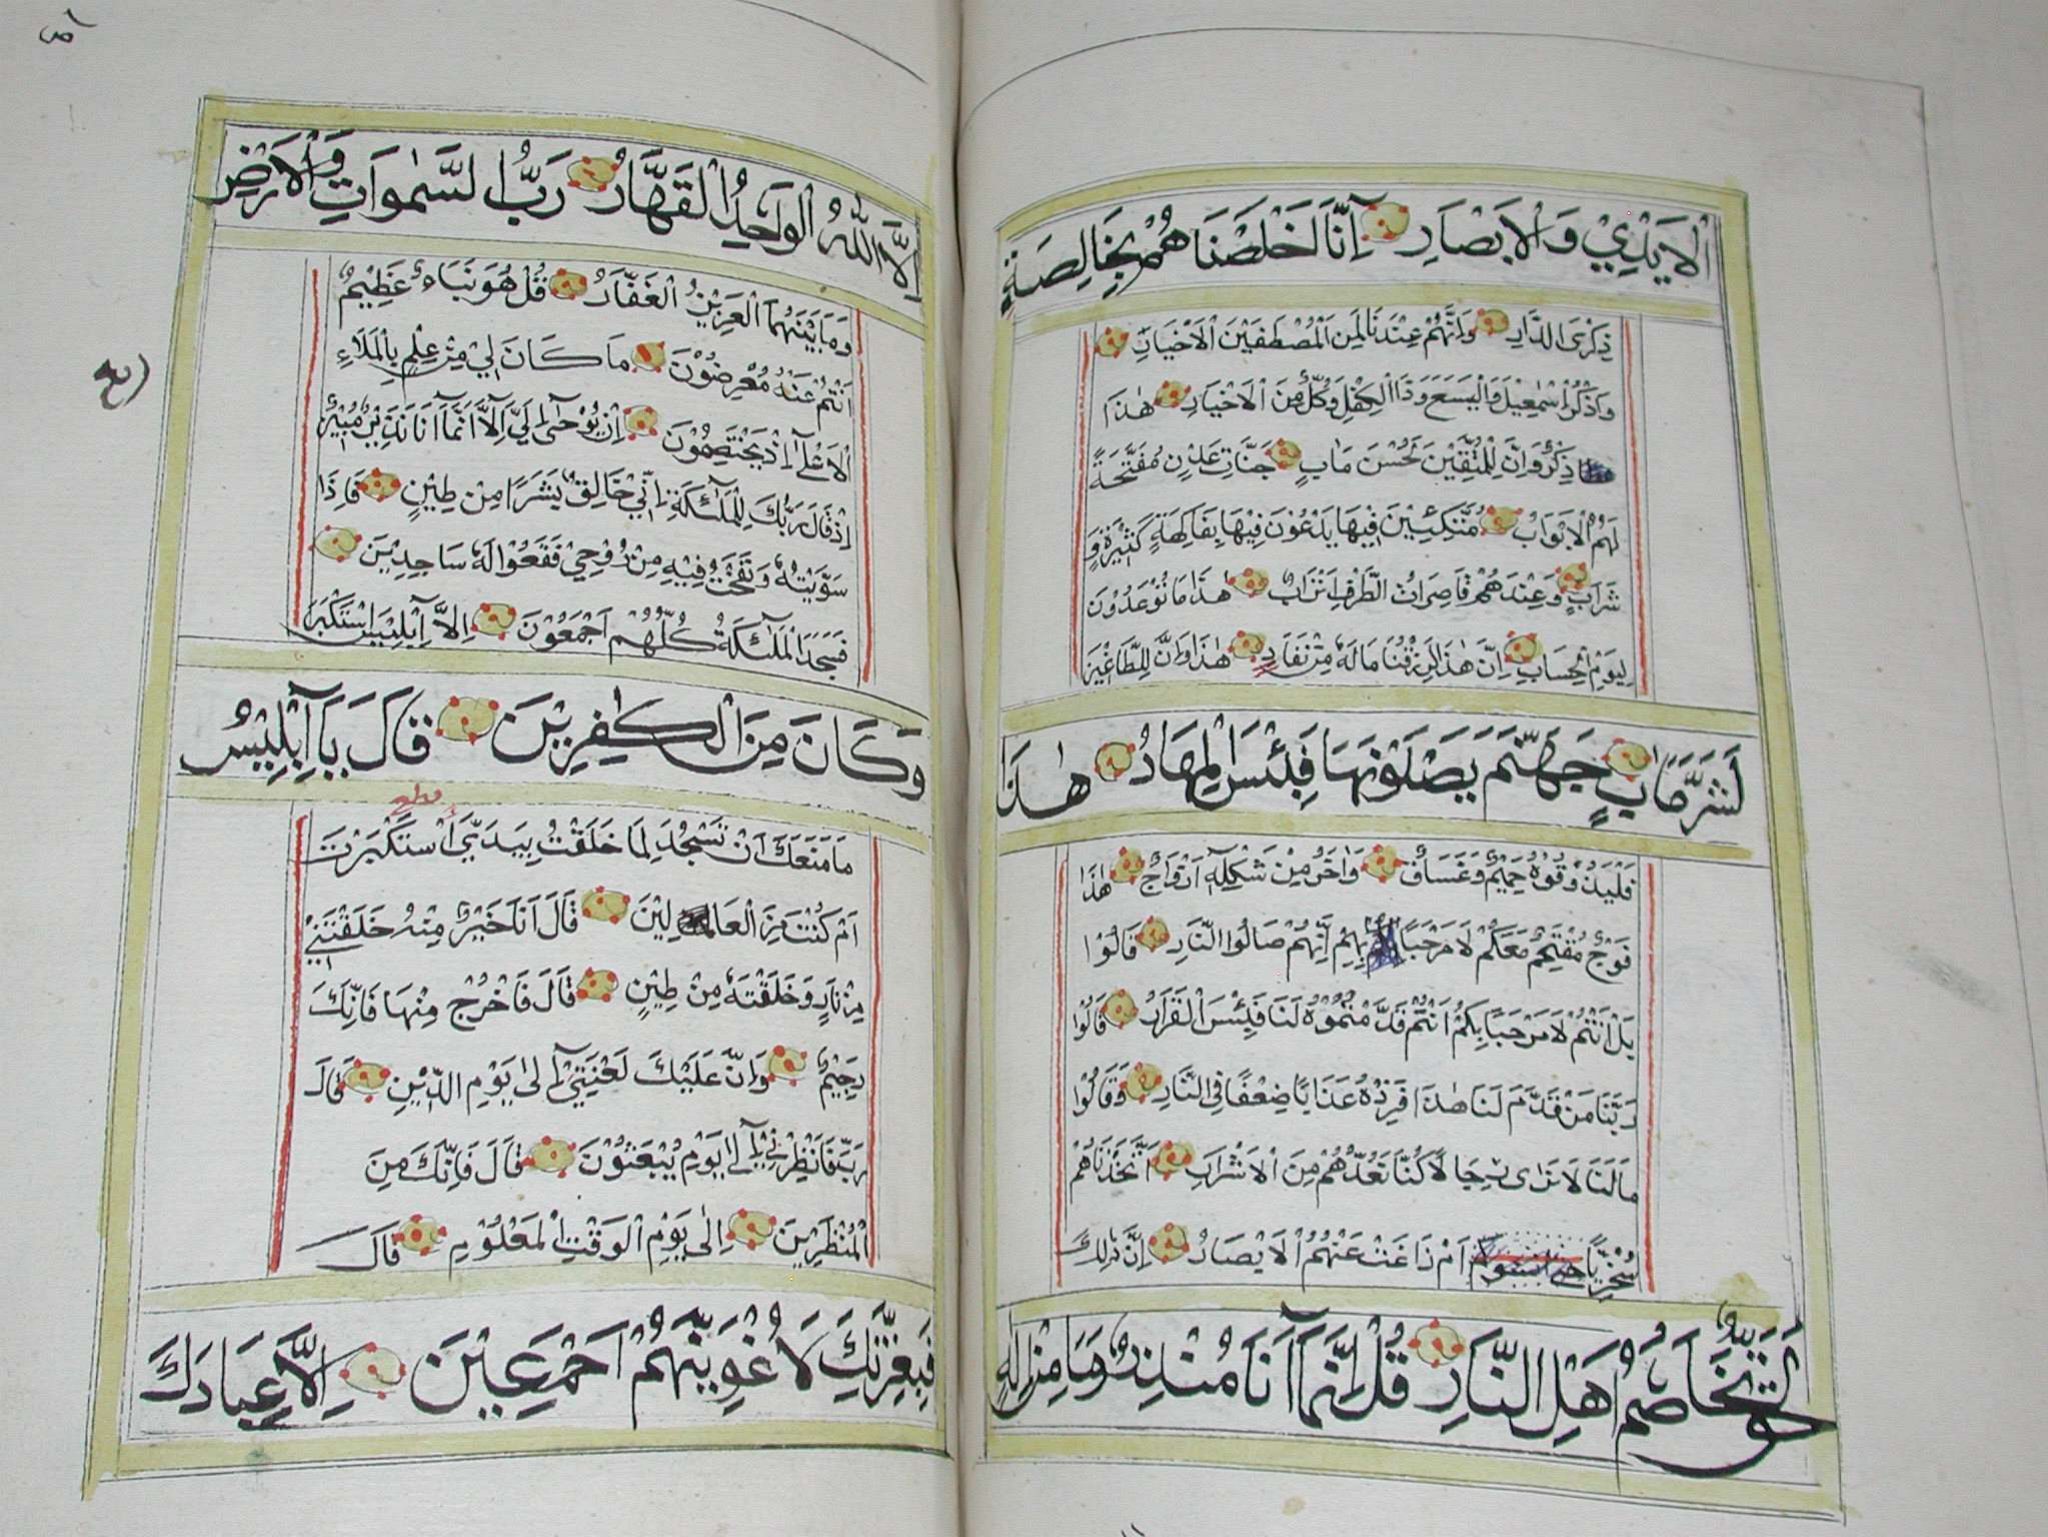 الْاَيْدِيْ وَالْاَبْصَارِ اِنَّا اَخْلَصْنَا هُمْ بِخَالِصَةٍ
ذِكْرَى الدَّارِ وَاِنَّهُمْ عِنْدَنَا لَمِنَ الْمُصْطَفَيْنَ الْاَخْيَارِ
وَاذْكُرْ اِسْمٰعِيْلَ وَالْيَسَعَ وَذَا الْكِفْلِ وَكُلٌّ مِنَ الْاَخْيَارِ هٰذَا
ذِكْرٌ وَاِنَّ لِلْمُتَّقِيْنَ لَحُسْنَ مَاٰبٍ جَنَّاتِ عَدْنٍ مُفَتَّحَةً
لَهُمُ الْاَبْوَابُ مُتَّكِئِيْنَ فِيْهَا يَدْعُوْنَ فِيْهَا بِفَاكِهَةٍ كَثِيْرَةٍ وَ
شَرَابٍ وَعِنْدَهُمْ قَاصِرَاتُ الطَّرْفِ اَتْرَابٌ هٰذَا مَا تُوْعَدُوْنَ
لِيَوْمِ الْحِسَابِ اِنَّ هٰذَا لَرِزْقُنَا مَا لَهُ مِنْ نَفَادٍ هٰذَا وَاِنَّ لِلطَّاغِيْنَ
لَشَرَّ مَاٰبٍ جَهَنَّمَ يَصْلَوْنَهَا فَبِئْسَ الْمِهَادُ هٰذَا
فَلْيَذُوْقُوْهُ حَمِيْمٌ وَغَسَاقٌ وَاٰخَرُ مِنْ شَكْلِهٖ اَزْوَاجٌ هٰذَا
فَوْجٌ مُقْتَحِمٌ مَعَكُمْ لَا مَرْحَبًا بِهِمْ اِنَّهُمْ صَالُوا النَّارِ قَالُوْا
بَلْ اَنْتُمْ لَا مَرْحَبًا بِكُمْ اَنْتُمْ قَدَّمْتُمُوْهُ لَنَا فَبِئْسَ الْقَرَارُ قَالُوْا
رَبَّنَا مَنْ قَدَّمَ لَنَا هٰذَا فَزِدْهُ عَذَابًا ضِعْفًا فِي النَّارِ وَقَالُوْا
مَا لَنَا لَا نَرٰى رِجَالًا كُنَّا نَعُدُّهُمْ مِنَ الْاَشْرَارِ اَتَّخَذْنَاهُمْ
سُخْرِيًّا اَمْ زَاغَتْ عَنْهُمُ الْاَبْصَارُ اِنَّ ذٰلِكَ
لَحَقٌّ تَخَاصُمُ اَهْلِ النَّارِ قُلْ اِنَّمَا اَنَا مُنْذِرٌ وَمَا مِنْ اِلٰهٍ
اِلَّا اللّٰهُ الْوَاحِدُ الْقَهَّارُ رَبُّ السَّمٰوَاتِ وَالْاَرْضِ
وَمَا بَيْنَهُمَا الْعَزِيْزُ الْغَفَّارُ قُلْ هُوَ نَبَاءٌ عَظِيْمٌ
اَنْتُمْ عَنْهُ مُعْرِضُوْنَ مَا كَانَ لِيْ مِنْ عِلْمٍ بِالْمَلَاءِ
الْاَعْلٰى اِذْ يَخْتَصِمُوْنَ اِنْ يُوْحٰى اِلَيَّ اِلَّا اَنَّمَا اَنَا نَذِيْرٌ مُبِيْنٌ
اِذْ قَالَ رَبُّكَ لِلْمَلٰئِكَةِ اِنِّيْ خَالِقٌ بَشَرًا مِنْ طِيْنٍ فَاِذَا
سَوَّيْتُهُ وَنَفَخْتُ فِيْهِ مِنْ رُوْحِيْ فَقَعُوْا لَهُ سَاجِدِيْنَ
فَسَجَدَ الْمَلٰئِكَةُ كُلُّهُمْ اَجْمَعُوْنَ اِلَّا اِبْلِيْسَ اسْتَكْبَرَ
وَكَانَ مِنَ الْكٰفِرِيْنَ قَالَ يَا اِبْلِيْسُ
مَا مَنَعَكَ اَنْ تَسْجُدَ لِمَا خَلَقْتُ بِيَدَيَّ اَسْتَكْبَرْتَ
اَمْ كُنْتَ مِنَ الْعَالِيْنَ قَالَ اَنَا خَيْرٌ مِنْهُ خَلَقْتَنِيْ
مِنْ نَارٍ وَخَلَقْتَهُ مِنْ طِيْنٍ قَالَ فَاخْرُجْ مِنْهَا فَاِنَّكَ
رَجِيْمٌ وَاِنَّ عَلَيْكَ لَعْنَتِيْ اِلٰى يَوْمِ الدِّيْنِ قَالَ
رَبِّ فَاَنْظِرْنِيْ اِلٰى يَوْمِ يُبْعَثُوْنَ قَالَ فَاِنَّكَ مِنَ
الْمُنْظَرِيْنَ اِلٰى يَوْمِ الْوَقْتِ الْمَعْلُوْمِ قَالَ
فَبِعِزَّتِكَ لَاُغْوِيَنَّهُمْ اَجْمَعِيْنَ اِلَّا عِبَادَكَ